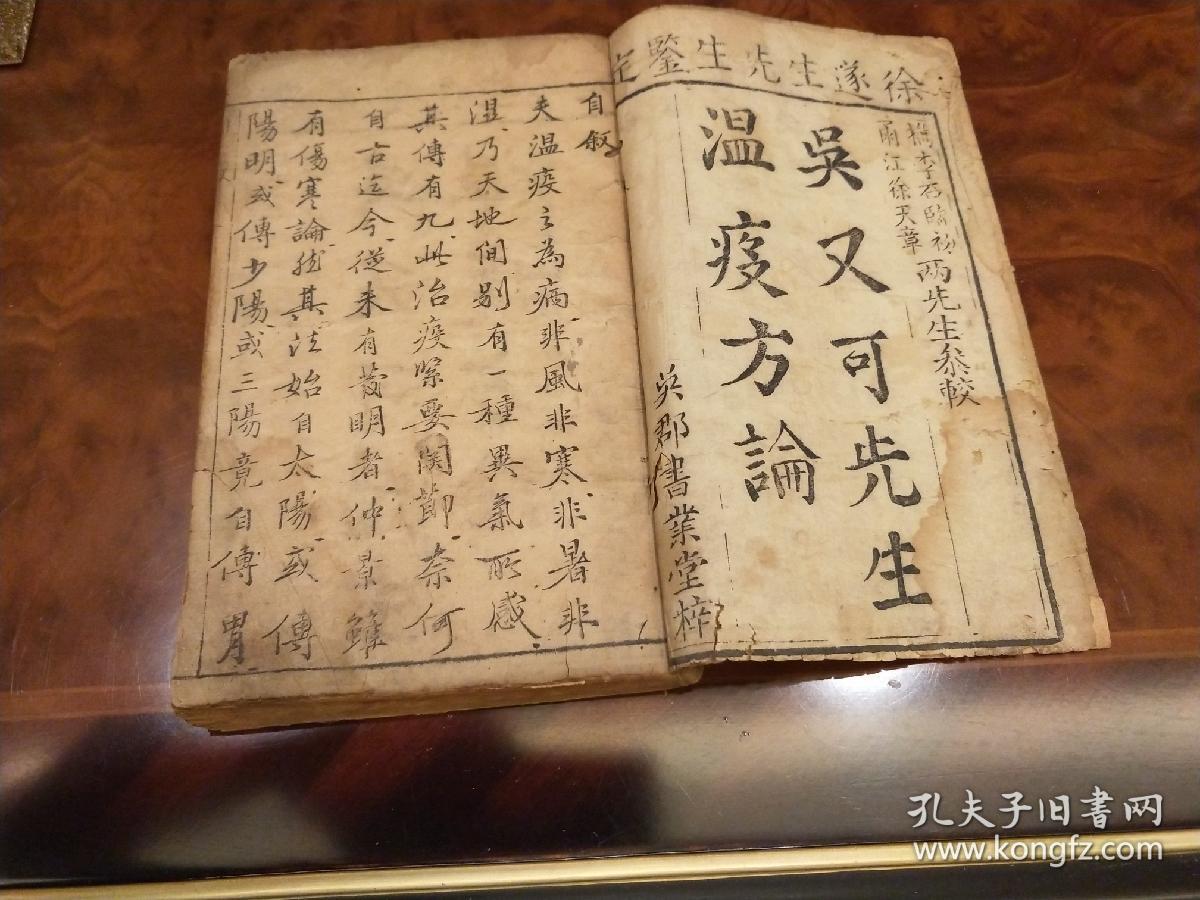 徐遂生先生鑒定
檇李石臨初
甬江徐天章
兩先生叅較
吳又可先生
溫疫方論
吳郡書業堂梓
自叙
夫溫疫之為病非風非寒非暑非
濕乃天地間别有一種異氣所感
其傳有九此治疫緊要関節奈何
自古迄今從未有發明者仲景雖
有傷寒論然其法始自太陽或傳
陽明或傳少陽或三陽竟自傳胃
孔夫子旧书网
www.kongfz.com